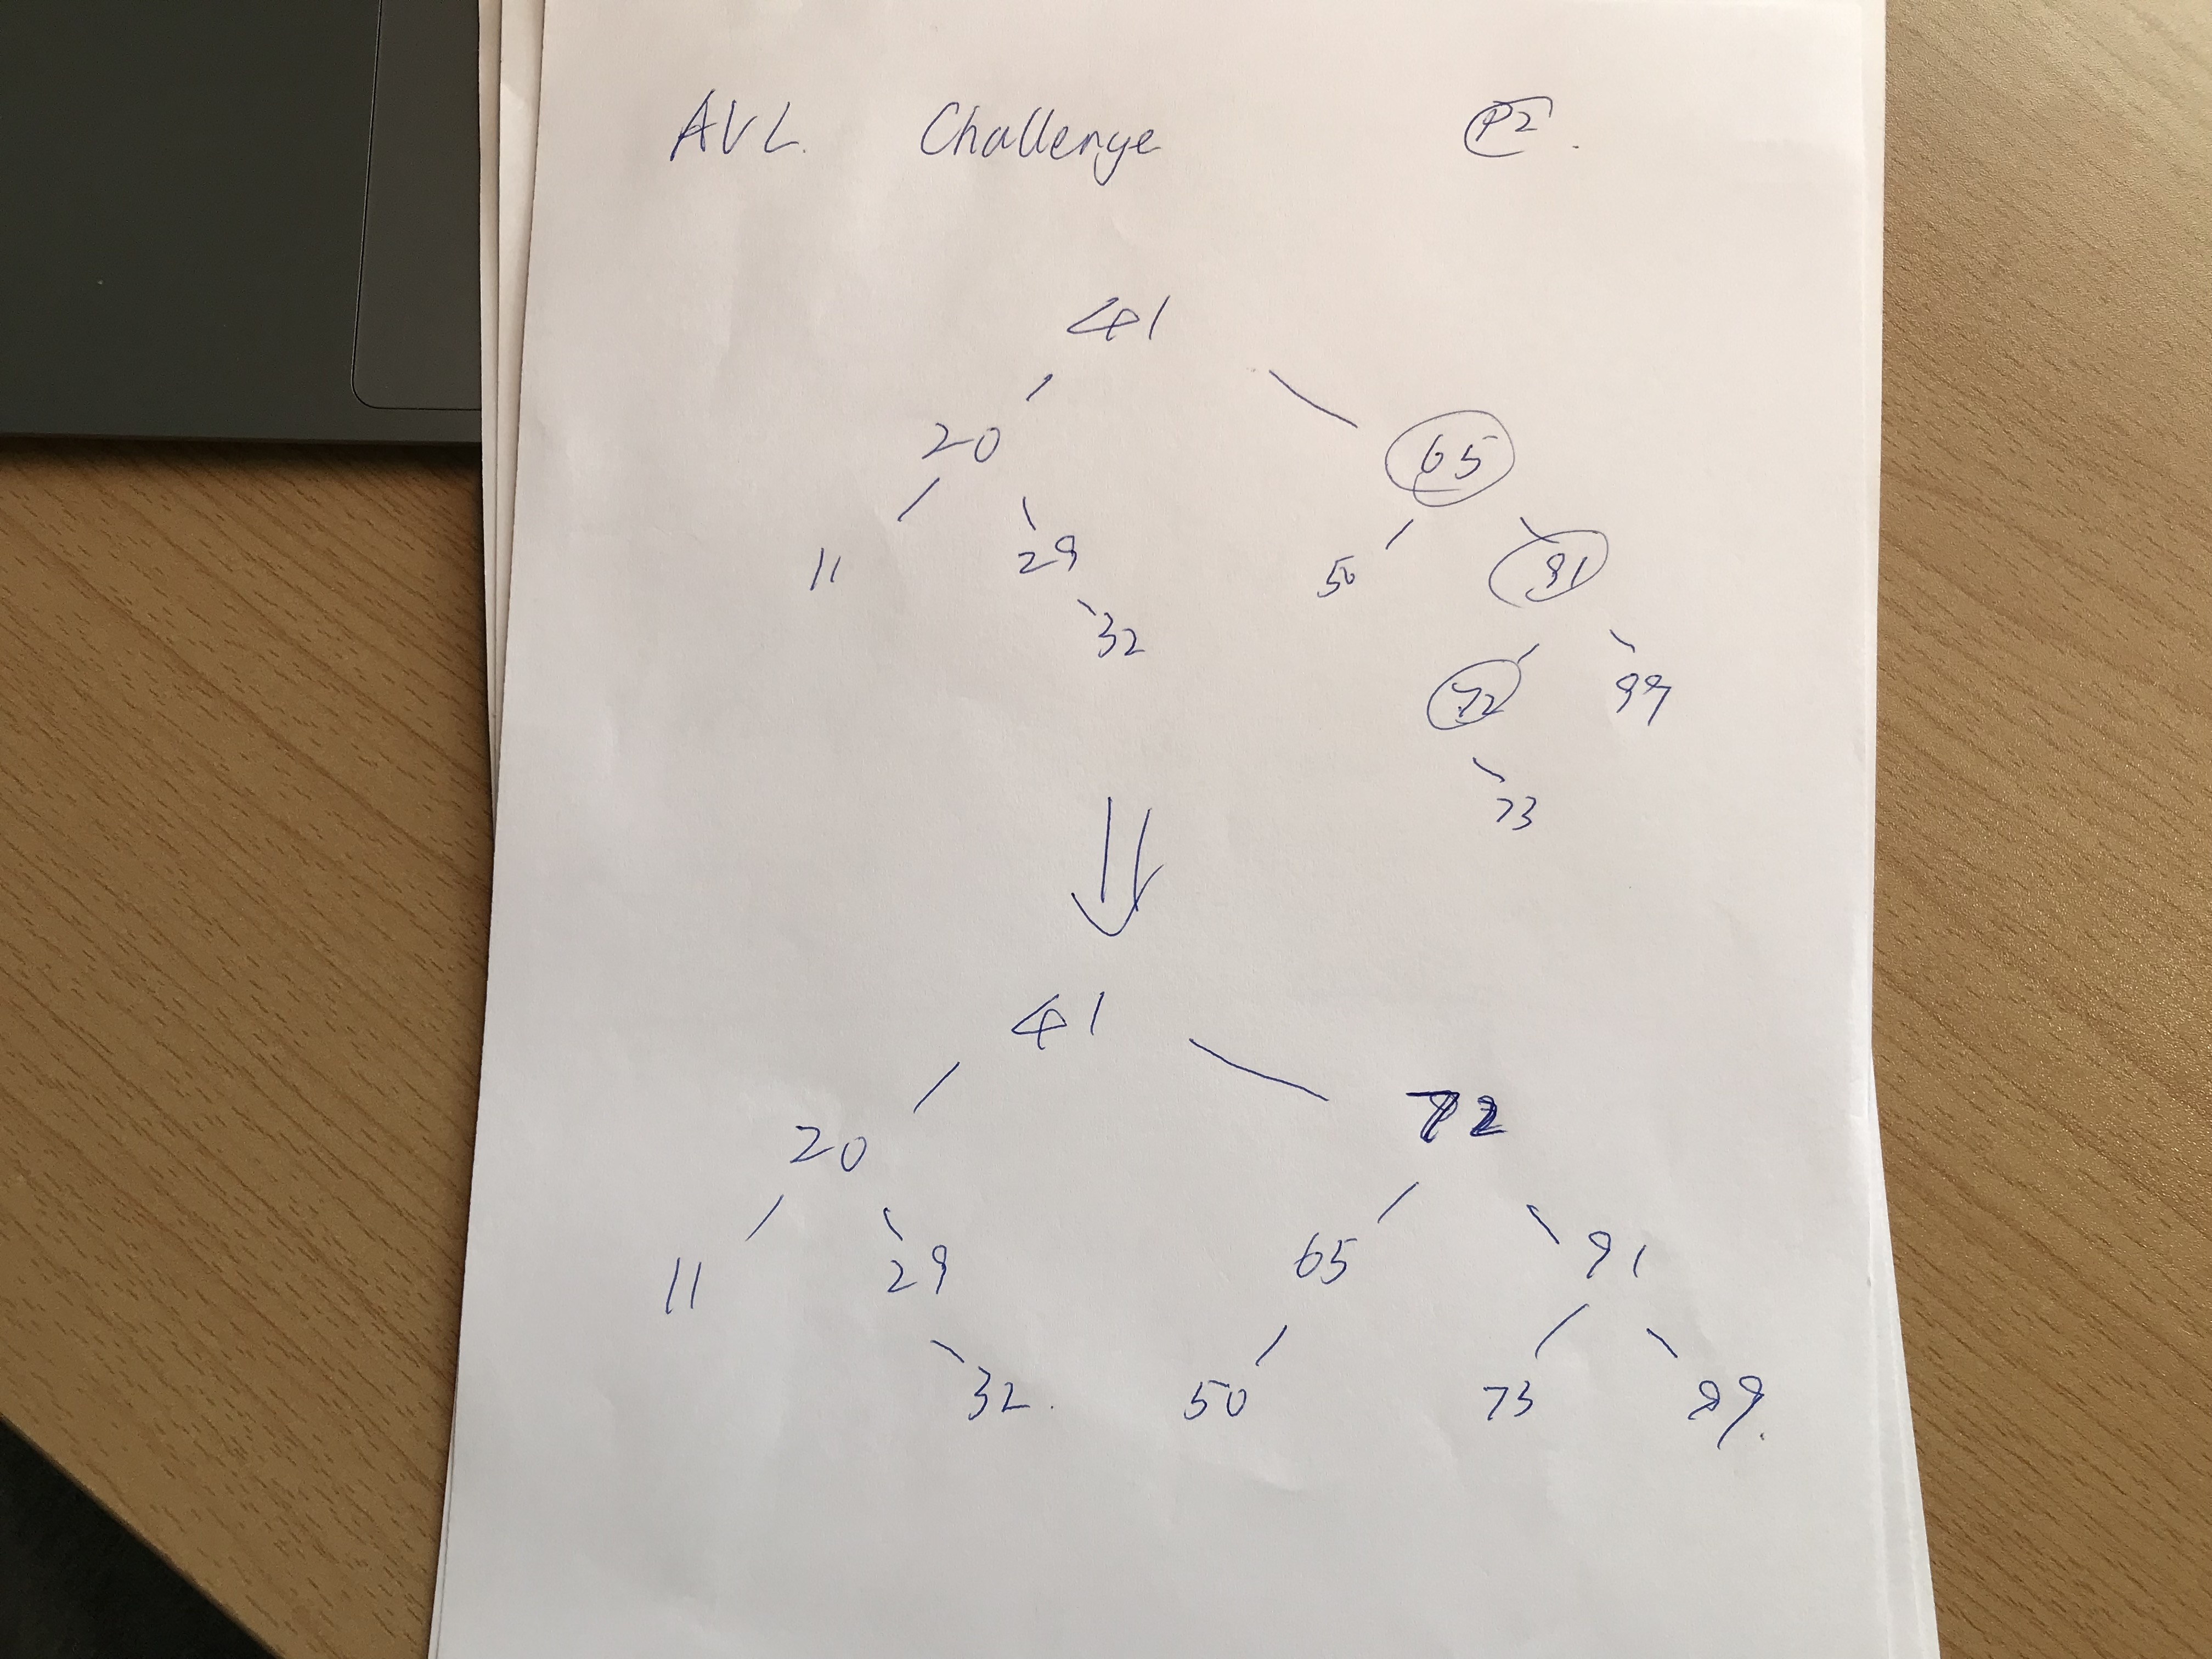 AVL. Challenge P2.
41
20 65
11 29 50 91
32 72 99
73
41
20 72
11 29 65 91
32. 50 73 99.